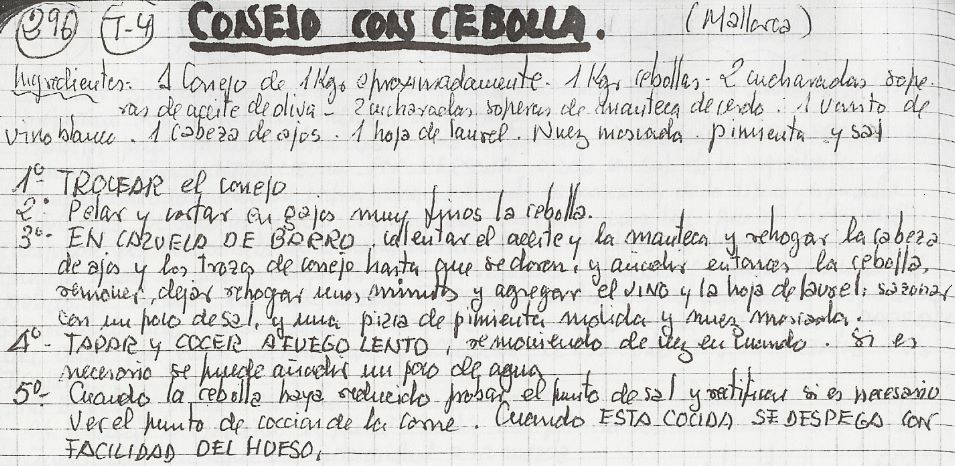 396 T-4 CONEJO CON CEBOLLA. (Mallorca)
Ingredientes:- 1 Conejo de 1 Kgr. aproximadamente. 1 Kgr cebollas - 2 cucharadas sope-
ras de aceite de oliva - 2 cucharadas soperas de manteca de cerdo. 1 vasito de
vino blanco. 1 cabeza de ajos. 1 hoja de laurel. Nuez moscada. pimienta y sal
1º- TROCEAR el conejo
2º- Pelar y cortar en gajos muy finos la cebolla.
3º- EN CAZUELA DE BARRO, calentar el aceite y la manteca y rehogar la cabeza
de ajos y los trozos de conejo hasta que se doren, y añadir entonces la cebolla,
remover, dejar rehogar unos minutos y agregar el VINO y la hoja de laurel; sazonar
con un poco de sal, y una pizca de pimienta molida y nuez moscada.
4º- TAPAR y COCER A FUEGO LENTO, removiendo de vez en cuando. Si es
necesario se puede añadir un poco de agua
5º- Cuando la cebolla haya reducido probar el punto de sal y rectificar si es necesario
Ver el punto de cocción de la carne. Cuando ESTA COCIDA SE DESPEGA CON
FACILIDAD DEL HUESO.